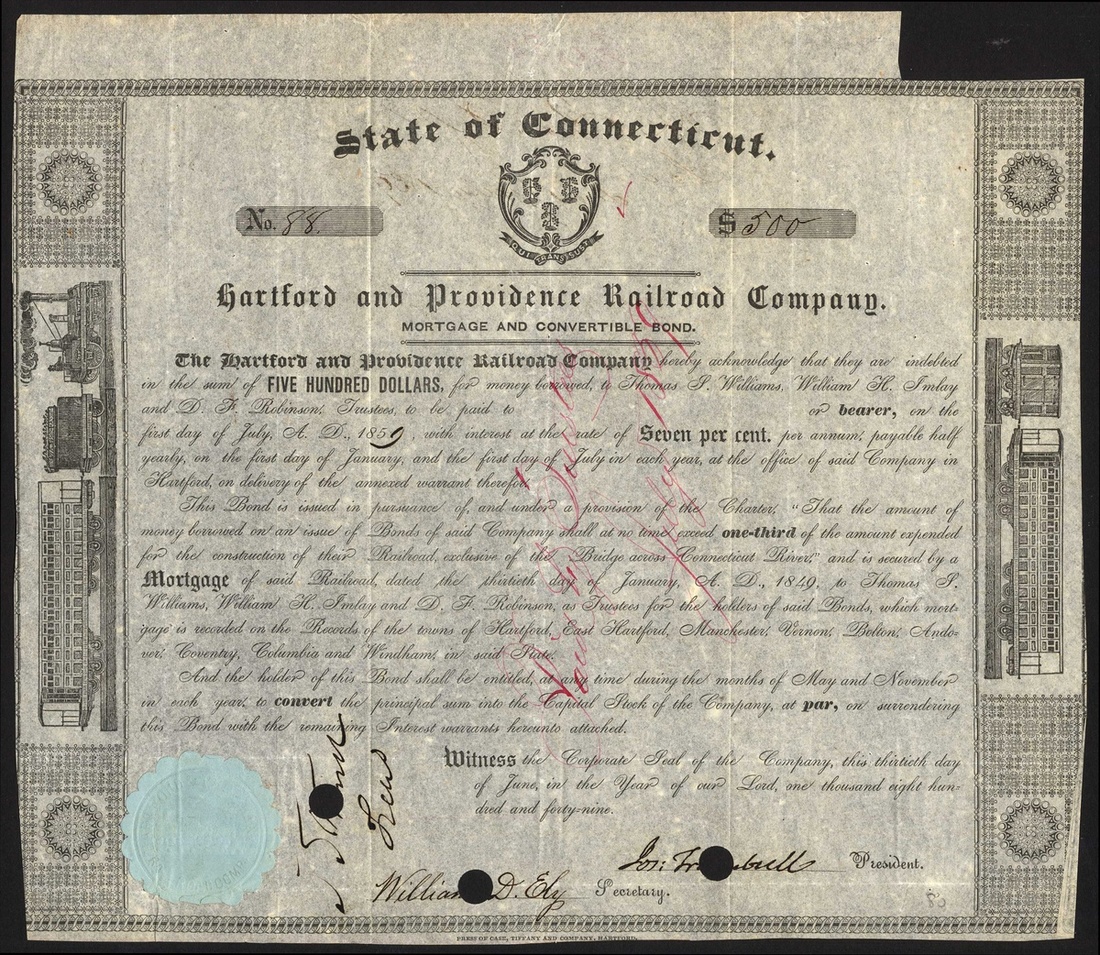 State of Connecticut.
No. 88.
$ 500
QUI TRANS. SUST.
Hartford and Providence Railroad Company.
MORTGAGE AND CONVERTIBLE BOND.
The Hartford and Providence Railroad Company hereby acknowledge that they are indebted
in the sum of FIVE HUNDRED DOLLARS, for money borrowed, to Thomas S. Williams, William H. Imlay
and D. F. Robinson, Trustees, to be paid to or bearer, on the
first day of July, A. D., 1859, with interest at the rate of Seven per cent. per annum, payable half
yearly, on the first day of January, and the first day of July in each year, at the office of said Company in
Hartford, on delivery of the annexed warrant therefor.
This Bond is issued in pursuance of, and under a provision of the Charter, "That the amount of
money borrowed on an issue of Bonds of said Company shall at no time exceed one-third of the amount expended
for the construction of their Railroad, exclusive of the Bridge across Connecticut River," and is secured by a
Mortgage of said Railroad, dated the thirtieth day of January, A. D., 1849, to Thomas S.
Williams, William H. Imlay and D. F. Robinson, as Trustees for the holders of said Bonds, which mort-
gage is recorded on the Records of the towns of Hartford, East Hartford, Manchester, Vernon, Bolton, Ando-
ver, Coventry, Columbia and Windham, in said State.
And the holder of this Bond shall be entitled, at any time during the months of May and November
in each year, to convert the principal sum into the Capital Stock of the Company, at par, on surrendering
this Bond with the remaining Interest warrants hereunto attached.
Witness the Corporate Seal of the Company, this thirtieth day
of June, in the Year of our Lord, one thousand eight hun-
dred and forty-nine.
Jos: Trumbull President.
William D. Ely Secretary.
PRESS OF CASE, TIFFANY AND COMPANY, HARTFORD.